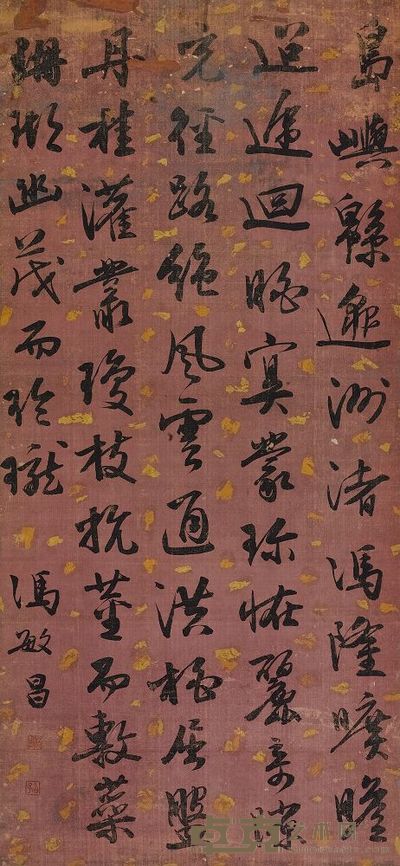 島嶼緜邈洲渚馮隆曠瞻
迢遞迴眺冥蒙珍怪麗奇隙
充徑路絕風雲通洪桃屈盤
丹桂灌叢瓊枝抗莖而敷蘂
珊瑚幽茂而玲瓏
馮敏昌